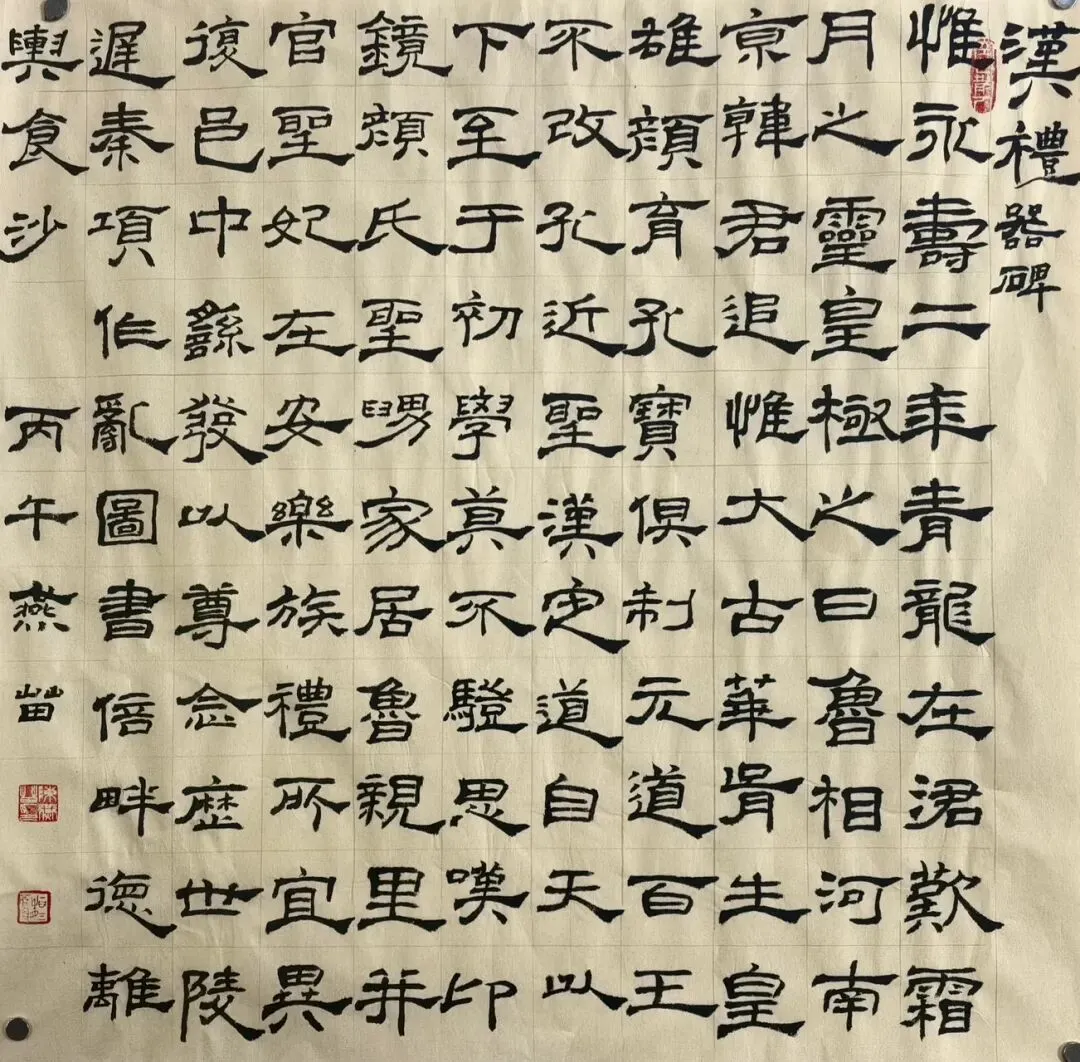 漢禮器碑
惟永壽二年青龍在涒歎霜
月之靈皇極之日魯相河南
京韓君追惟大古華胥生皇
雄顏育孔寶俱制元道百王
不改孔近聖漢定道自天以
下至于初學莫不思嘆卬
鏡顏氏聖舅家居魯親里并
官聖妃在安樂族禮所宜異
復邑中繇發以尊念歷世陵
遲秦項作亂圖書倍畔德離
輿食沙
丙午燕